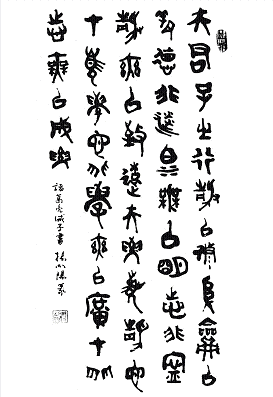 夫君子之行静以脩身儉以
養德非澹泊無以明志非寧
静無以致遠夫學須静也
才須學也非學無以廣才非
志無以成學
諸葛亮誡子書